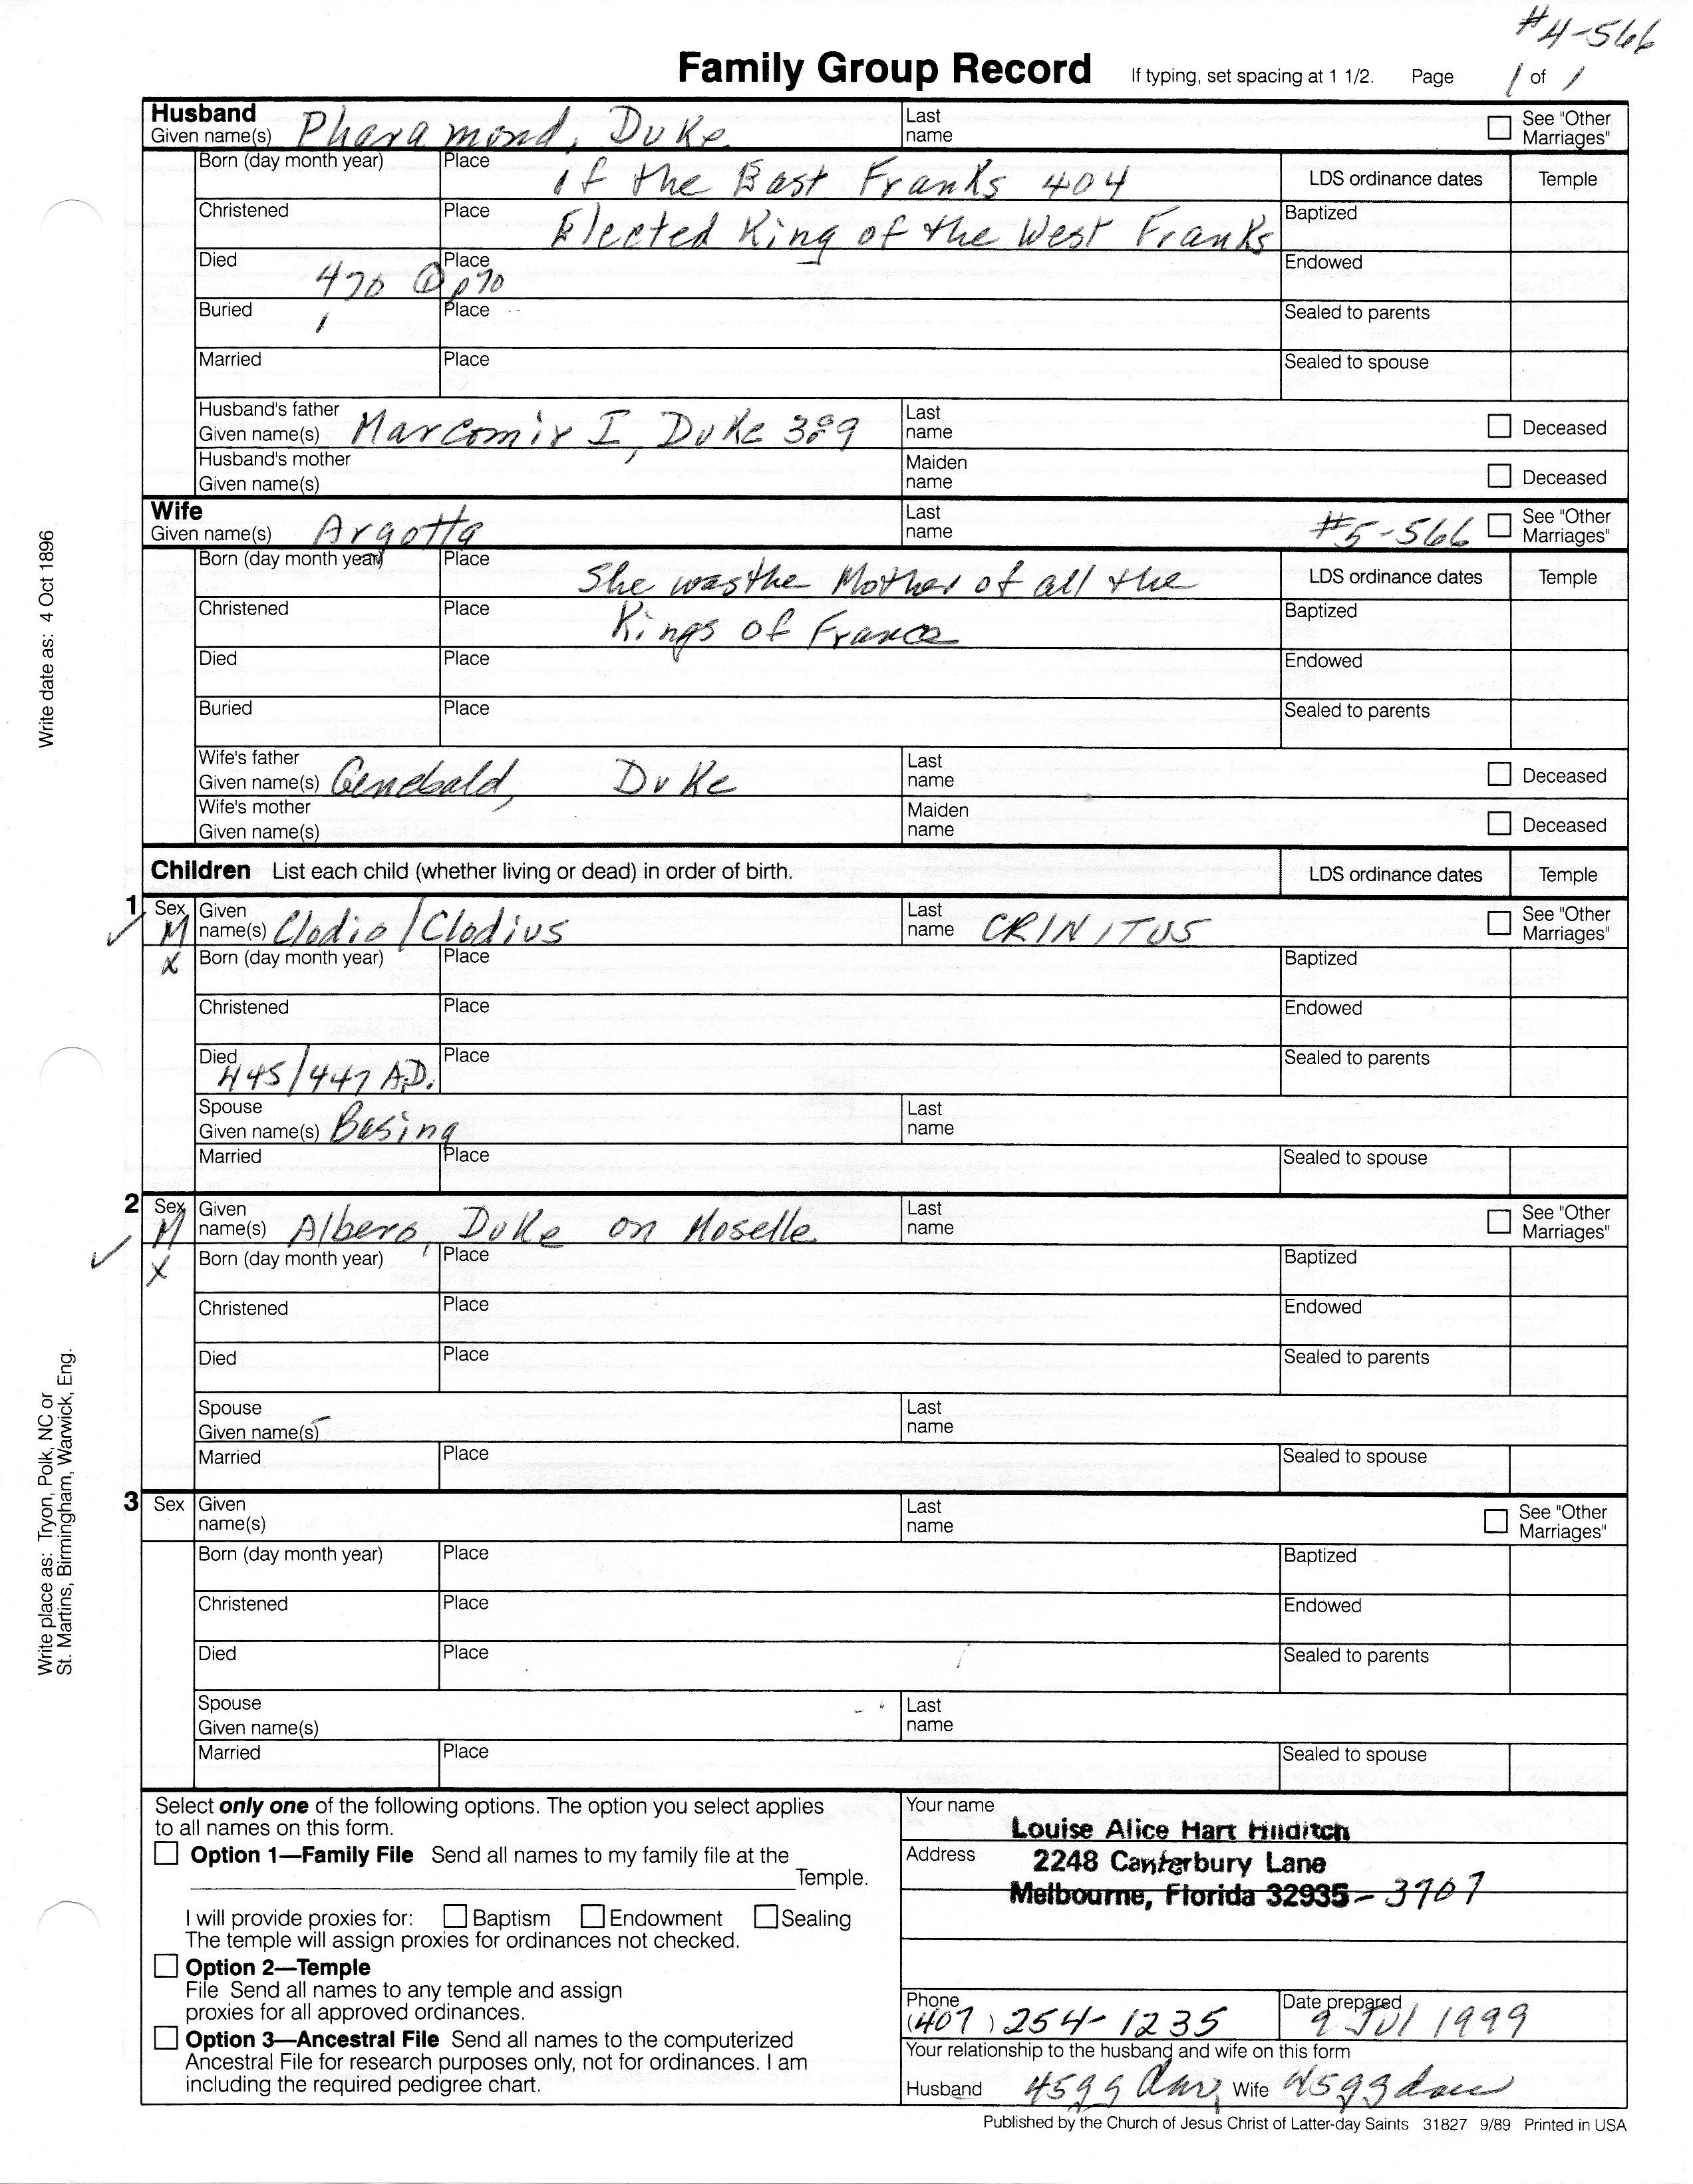 #4-566
Family Group Record If typing, set spacing at 1 1/2. Page 1 of 1
Husband
Given name(s) Pharamond, Duke
Last name
See "Other Marriages"
Born (day month year) Place of the East Franks 404 LDS ordinance dates Temple
Christened Place Elected King of the West Franks Baptized
Died 470 @ p70 Place Endowed
Buried Place Sealed to parents
Married Place Sealed to spouse
Husband's father
Given name(s) Marcomir I, Duke 389
Last name
Deceased
Husband's mother
Given name(s)
Maiden name
Deceased
Wife
Given name(s) Argotta
Last name #5-566
See "Other Marriages"
Born (day month year) Place She was the Mother of all the LDS ordinance dates Temple
Christened Place Kings of France Baptized
Died Place Endowed
Buried Place Sealed to parents
Wife's father
Given name(s) Genebald, Duke
Last name
Deceased
Wife's mother
Given name(s)
Maiden name
Deceased
Children List each child (whether living or dead) in order of birth. LDS ordinance dates Temple
1 Sex M Given name(s) Clodio/Clodius Last name CRINITUS See "Other Marriages"
X Born (day month year) Place Baptized
Christened Place Endowed
Died 445/447 A.D. Place Sealed to parents
Spouse
Given name(s) Basina
Last name
Married Place Sealed to spouse
2 Sex M Given name(s) Albero, Duke on Moselle Last name See "Other Marriages"
X Born (day month year) Place Baptized
Christened Place Endowed
Died Place Sealed to parents
Spouse
Given name(s)
Last name
Married Place Sealed to spouse
3 Sex Given name(s) Last name See "Other Marriages"
Born (day month year) Place Baptized
Christened Place Endowed
Died Place Sealed to parents
Spouse
Given name(s)
Last name
Married Place Sealed to spouse
Select only one of the following options. The option you select applies
to all names on this form.
Option 1—Family File Send all names to my family file at the
Temple.
I will provide proxies for: Baptism Endowment Sealing
The temple will assign proxies for ordinances not checked.
Option 2—Temple
File Send all names to any temple and assign
proxies for all approved ordinances.
Option 3—Ancestral File Send all names to the computerized
Ancestral File for research purposes only, not for ordinances. I am
including the required pedigree chart.
Your name Louise Alice Hart Hilditch
Address 2248 Canterbury Lane
Melbourne, Florida 32935-3707
Phone (407) 254-1235
Date prepared 9 Jul 1999
Your relationship to the husband and wife on this form
Husband 45gg dau Wife 45gg dau
Published by the Church of Jesus Christ of Latter-day Saints 31827 9/89 Printed in USA
Write date as: 4 Oct 1896
Write place as: Tryon, Polk, NC or
St. Martins, Birmingham, Warwick, Eng.